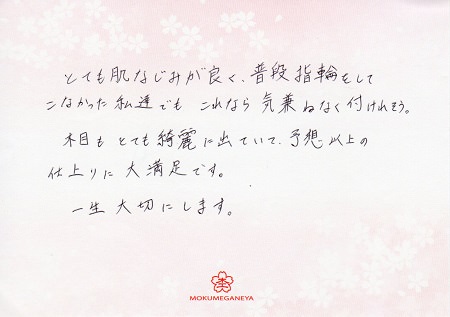 とても肌なじみが良く、普段指輪をして
こなかった私達でも これなら気兼ねなく付けれそう。
木目もとても綺麗に出ていて、予想以上の
仕上りに大満足です。
一生大切にします。
MOKUMEGANEYA